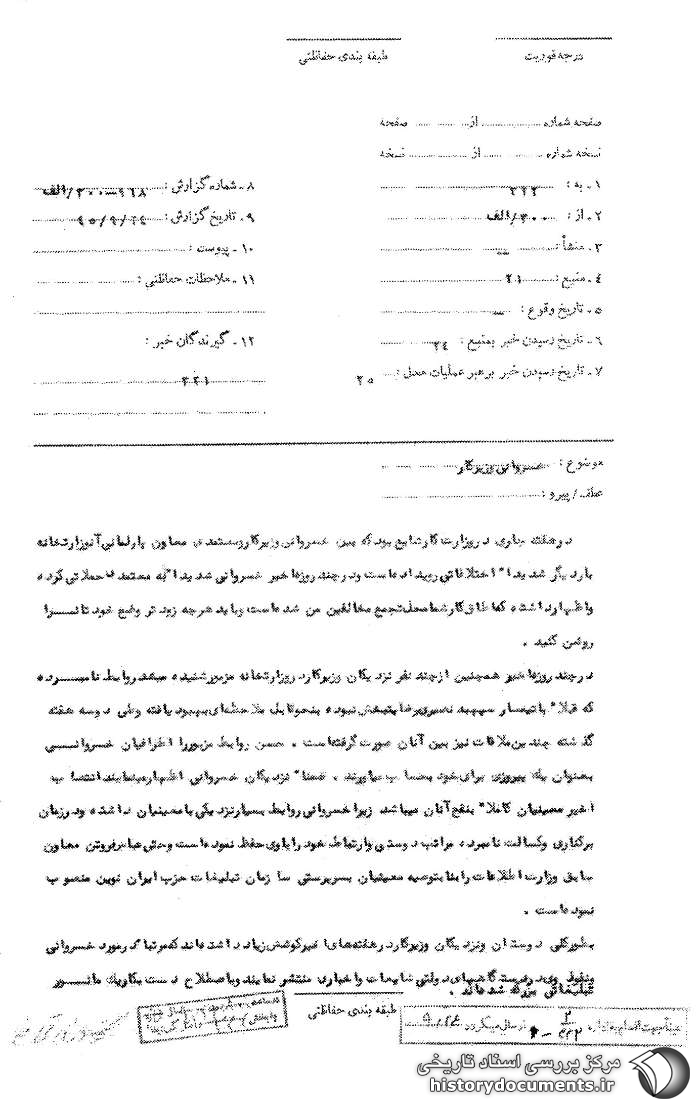 درجه فوریت
طبقه بندی حفاظتی
صفحه شماره از صفحه
نسخه شماره از نسخه
۱ـ به : ۳۲۲
۲ـ از : ۳۰۰/الف
۳ـ منشأ : ـــ
۴ـ منبع : ۲۱
۵ـ تاریخ وقوع : ـــ
۶ـ تاریخ رسیدن خبر بمنبع : ۲٤
۷ـ تاریخ رسیدن خبر برهبر عملیات محل : ۲۵
۸ـ شماره گزارش : ۳۰۰/الف
۹ـ تاریخ گزارش : ٤۵/۹/۲٤
۱۰ـ پیوست :
۱۱ـ ملاحظات حفاظتی :
۱۲ـ گیرندگان خبر :
۳۲۱
موضوع : خسروانی وزیر کار
عطف / پیرو :
در هفته جاری در وزارت کار شایع بود که بین خسروانی وزیر کار و معتمدی معاون پارلمانی آنوزارتخانه
بار دیگر شدیدا" اختلافاتی رویداده است و در چند روز اخیر خسروانی شدیدا" به معتمد حملاتی کرده
و اظهار داشته که اطاق کار شما محل تجمع مخالفین من شده است و باید هرچه زودتر وضع خود تانــرا
روشن کنید .
در چند روز اخیر همچنین از چند نفر نزدیکان وزیر کار در وزارتخانه مزبور شنیده میشد روابط نامبــرده
که قبلا" با تیمسار سپهبد نصیری رضایتبخش نبوده بنحو قابل ملاحظه‌ای بهبود یافته و طی دو سه هفته
گذشته چندین ملاقات نیز بین آنان صورت گرفته است . حسن روابط مزبور را اطرافیان خسروانــی
بعنوان یک پیروزی برای خود بحساب میاورند . ضمنا" نزدیکان خسروانی اظهار مینمایند انتصاب
اخیر معینیان کاملا" بنفع آنان میباشد زیرا خسروانی روابط بسیار نزدیکی با معینیان داشته و در زمان
برکناری و کسالت نامبرده مراتب دوستی و ارتباط خود را با وی حفظ نموده است و حتی عباس فروتن معاون
سابق وزارت اطلاعات را بنا بتوصیه معینیان بسرپرستی سازمان تبلیغات حزب ایران نوین منصوب
نموده است .
بطور کلی دوستان و نزدیکان وزیر کار در هفته‌های اخیر کوشش زیاد داشته‌اند که مرتبا" در مورد خسروانی
و نفوذ وی در دستگاههای دولتی شایعات و اخباری منتشر نمایند و باصطلاح دست بکار یک مانــور
تبلیغاتی بزرگ شده‌اند .
طبقه بندی حفاظتی
ارسال میگردد
مرکز بررسی اسناد تاریخی
historydocuments.ir